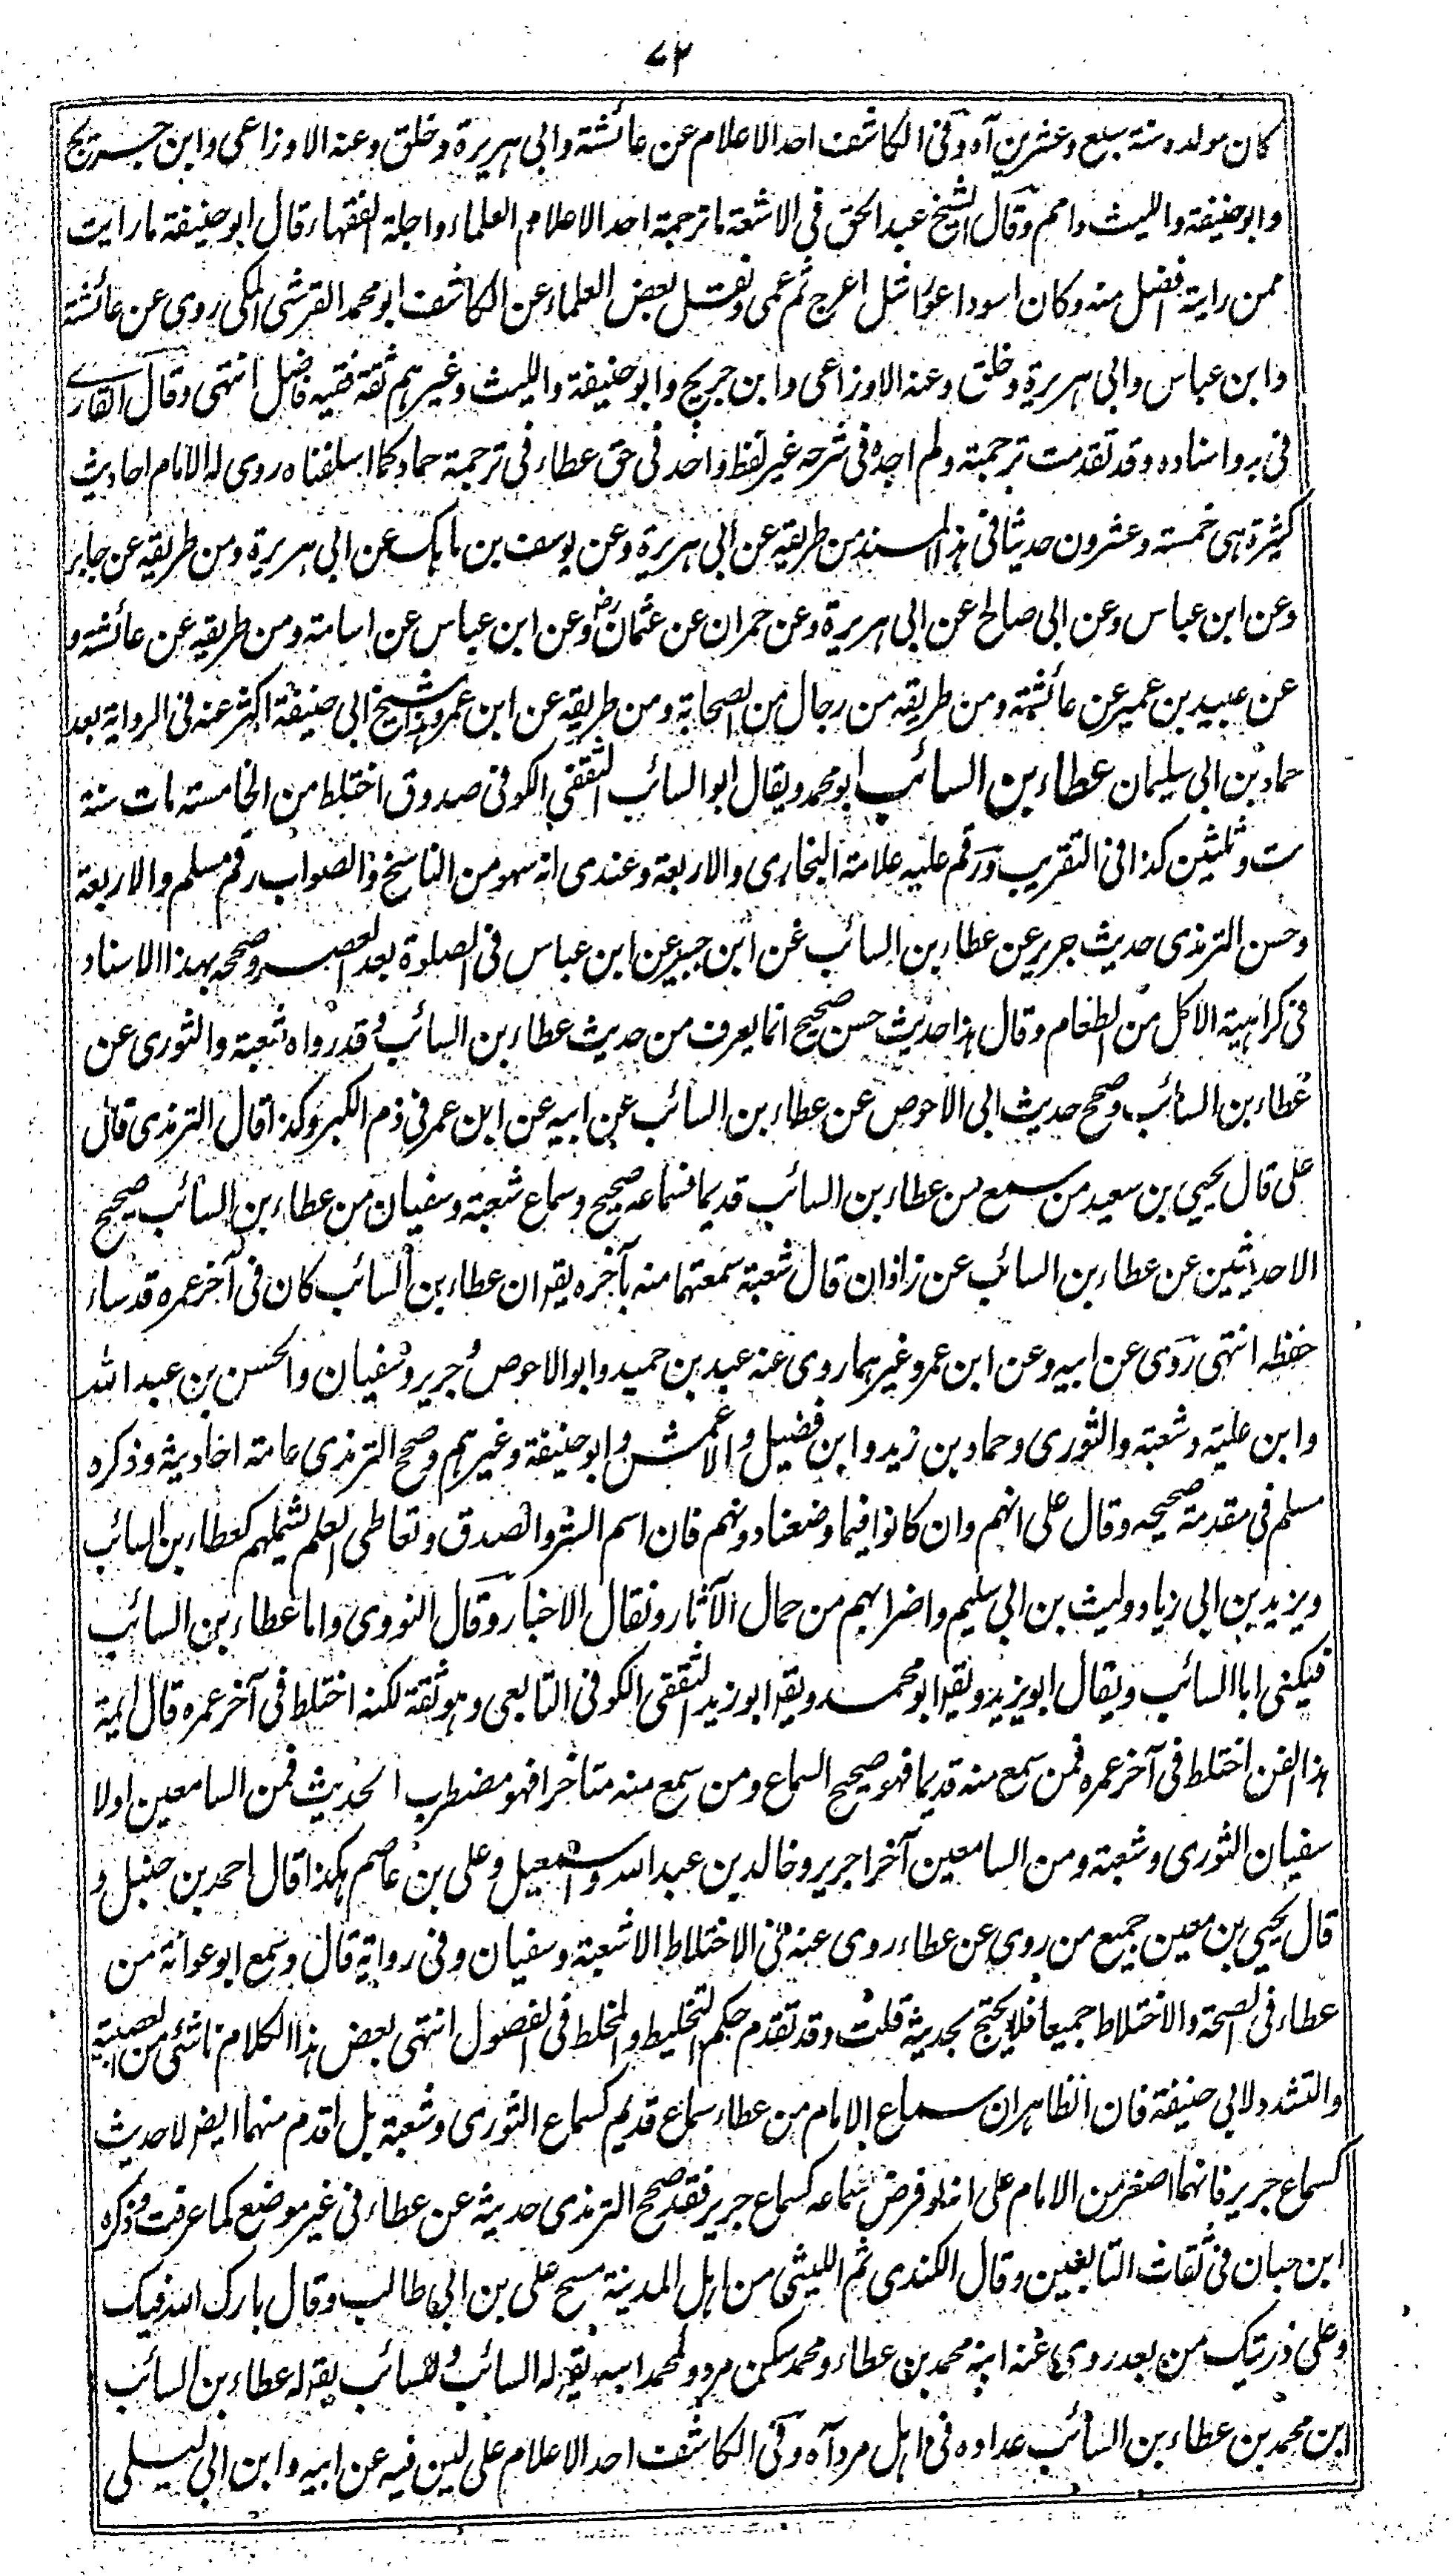 ٧٢
كان مولده سنة سبع وعشرين آه وفى الكاشف احد الاعلام عن عائشة وابى هريرة وخلق وعنه الاوزاعى وابن جريج
وابو حنيفة والليث وامم وقال الشيخ عبد الحق فى الاشعة ما ترجمته احد الاعلام العلماء واجلة الفقهاء قال ابو حنيفة ما رايت
ممن رايته افضل منه وكان اسود اعور اشل اعرج ثم عمى ونقل بعض العلماء عن الكاشف ابو محمد القرشى المكى روى عن عائشة
وابن عباس وابى هريرة وخلق وعنه الاوزاعى وابن جريج وابو حنيفة والليث وغيرهم ثقة فقيه فاضل انتهى وقال القارى
فى بر واسناده وقد تقدمت ترجمته ولم اجده فى شرحه غير لفظ واحد فى حق عطاء فى ترجمة حماد كما اسلفناه روى له الامام احاديث
كثيرة هى خمسة وعشرون حديثا فى هذا المسند من طريقه عن ابى هريرة وعن يوسف بن ماهك عن ابى هريرة ومن طريقه عن جابر
وعن ابن عباس وعن ابى صالح عن ابى هريرة وعن حمران عن عثمان رض وعن ابن عباس عن اسامة ومن طريقه عن عائشة و
عن عبيد بن عمير عن عائشة ومن طريقه من رجال من الصحابة ومن طريقه عن ابن عمر وهذا شيخ ابى حنيفة اكثر عنه فى الرواية بعد
حماد بن ابى سليمان عطاء بن السائب ابو محمد ويقال ابو السائب الثقفى الكوفى صدوق اختلط من الخامسة مات سنة
ست وثلثين كذا فى التقريب ورقم عليه علامة البخارى والاربعة وعندى انه سهو من الناسخ والصواب رقم مسلم والاربعة
وحسن الترمذى حديث جرير عن عطاء بن السائب عن ابن جبير عن ابن عباس فى الصلوة بعد العصر وصححه بهذا الاسناد
فى كراهية الاكل من الطعام وقال هذا حديث حسن صحيح انما يعرف من حديث عطاء بن السائب وقد رواه شعبة والثورى عن
عطاء بن السائب وصحح حديث ابى الاحوص عن عطاء بن السائب عن ابيه عن ابن عمر فى ذم الكبر وكذا قال الترمذى قال
على قال يحيى بن سعيد من سمع من عطاء بن السائب قديما فسماعه صحيح وسماع شعبة وسفيان من عطاء بن السائب صحيح
الا حديثين عن عطاء بن السائب عن زاذان قال شعبة سمعتهما منه بآخره يقال ان عطاء بن السائب كان فى آخر عمره قد ساء
حفظه انتهى روى عن ابيه وعن ابن عمر وغيرهما روى عنه عبيد بن حميد وابو الاحوص وجرير وسفيان والحسن بن عبد الله
وابن علية وشعبة والثورى وحماد بن زيد وابن فضيل والاعمش وابو حنيفة وغيرهم وصحح الترمذى عامة احاديثه وذكره
مسلم فى مقدمة صحيحه وقال على انهم وان كانوا فيما وضعنا دونهم فان اسم الستر والصدق وتعاطى العلم يشملهم كعطاء بن السائب
ويزيد بن ابى زياد وليث بن ابى سليم واضرابهم من حمال الآثار ونقال الاخبار وقال النووى واما عطاء بن السائب
فيكنى ابا السائب ويقال ابو يزيد ويقر ابو محمد ويقر ابو زيد الثقفى الكوفى التابعى وهو ثقة لكنه اختلط فى آخر عمره قال ايمة
هذا الفن اختلط فى آخر عمره فمن سمع منه قديما فهو صحيح السماع ومن سمع منه متاخرا فهو مضطرب الحديث فمن السامعين اولا
سفيان الثورى وشعبة ومن السامعين آخرا جرير وخالد بن عبد الله واسمعيل وعلى بن عاصم هكذا قال احمد بن حنبل و
قال يحيى بن معين جميع من روى عن عطاء روى عنه فى الاختلاط الا شعبة وسفيان وفى رواية قال وسمع ابو عوانة من
عطاء فى الصحة والاختلاط جميعا فلا يحتج بحديثه قلت وقد تقدم حكم التخليط والمخلط فى الفصول انتهى بعض هذا الكلام ناشئ من العصبية
والتشدد لابى حنيفة فان الظاهر ان سماع الامام من عطاء سماع قديم كسماع الثورى وشعبة بل اقدم منهما ايضا لا حديث
كسماع جرير فانهما اصغر من الامام على انه لو فرض سماعه كسماع جرير فقد صحح الترمذى حديثه عن عطاء فى غير موضع كما عرفت وذكره
ابن حبان فى ثقات التابعين وقال الكندى ثم الليثى من اهل المدينة مسح على بن ابى طالب وقال بارك الله فيك
وعلى ذريتك من بعد روى عنه ابنه محمد بن عطاء ومحمد سكن مرو ولمحمد ابن يقر له السائب وللسائب يقر له عطاء بن السائب
ابن محمد بن عطاء بن السائب عداده فى اهل مرو آه وفى الكاشف احد الاعلام على لين فيه عن ابيه وابن ابى ليلى